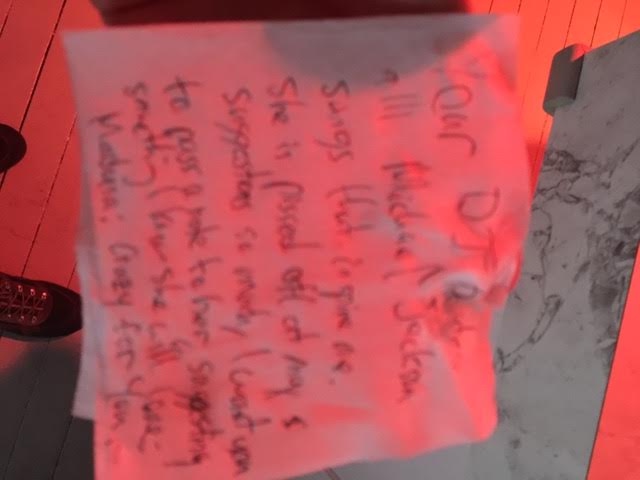 Your DJ
all Michael Jackson
songs that ignore me.
She is pissed off at my s
suggestions so much, I want you
to pass a note to her suggesting
something I know she will love-
Madonna: Crazy for you.